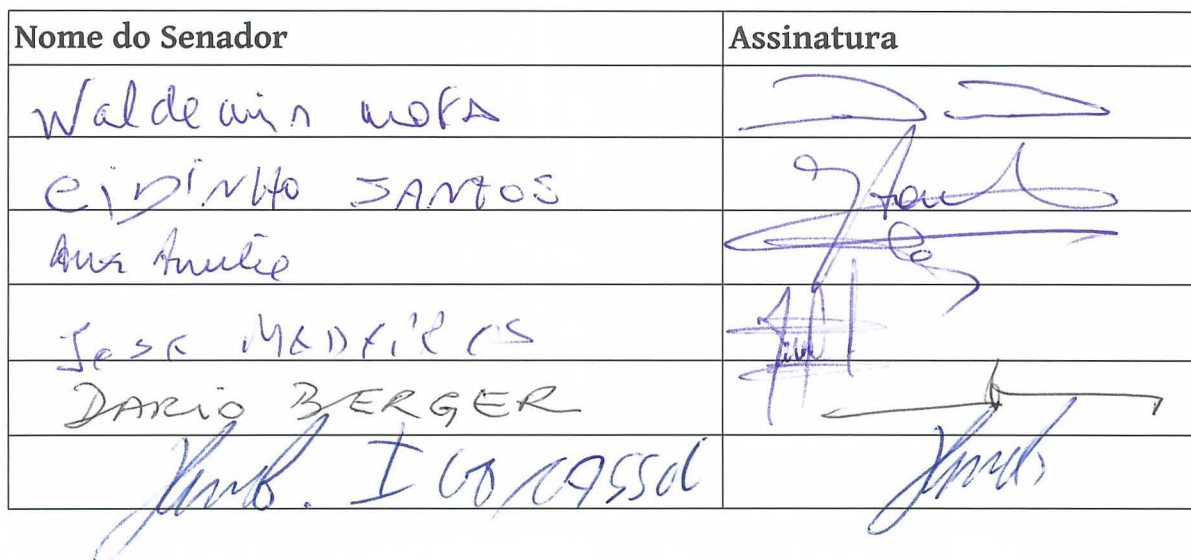 Nome do Senador Assinatura
Waldemir MOKA
CiDiNHO SANTOS
Ana Amélia
JOSE MEDEIROS
DARIO BERGER
IVO CASSOL